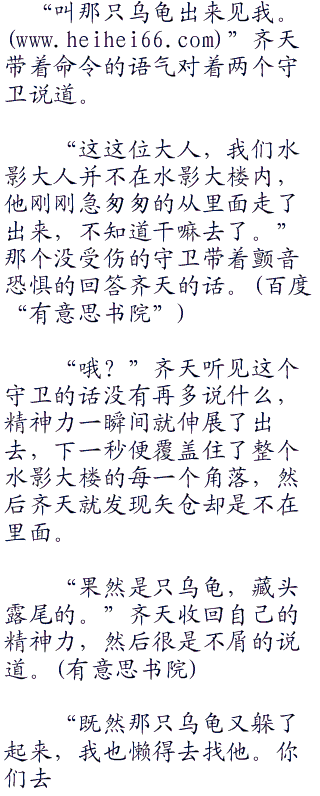 “叫那只乌龟出来见我。
(www.heihei66.com)”齐天
带着命令的语气对着两个守
卫说道。
“这这位大人，我们水
影大人并不在水影大楼内，
他刚刚急匆匆的从里面走了
出来，不知道干嘛去了。”
那个没受伤的守卫带着颤音
恐惧的回答齐天的话。(百度
“有意思书院”)
“哦？”齐天听见这个
守卫的话没有再多说什么，
精神力一瞬间就伸展了出
去，下一秒便覆盖住了整个
水影大楼的每一个角落，然
后齐天就发现矢仓却是不在
里面。
“果然是只乌龟，藏头
露尾的。”齐天收回自己的
精神力，然后很是不屑的说
道。(有意思书院)
“既然那只乌龟又躲了
起来，我也懒得去找他。你
们去